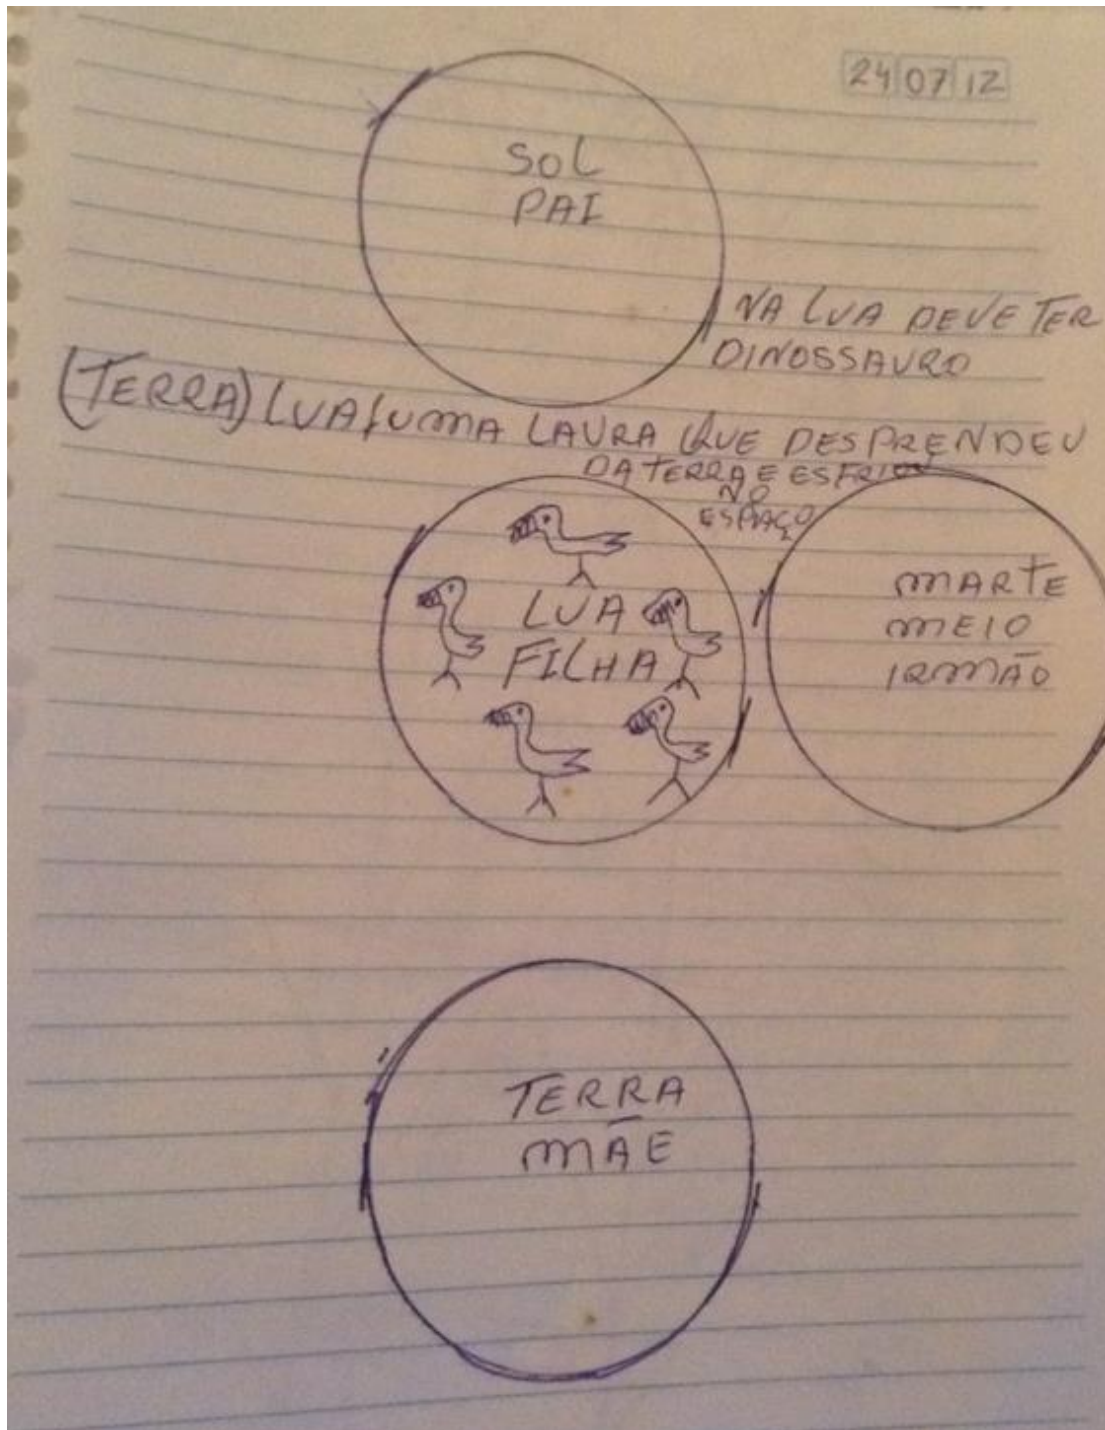 24 07 12
SOL
PAI
NA LUA DEVE TER
DINOSSAURO
(TERRA) LUA UMA LAVRA QUE DESPRENDEU
DA TERRA E ESFRIOU
NO
ESPAÇO
LUA
FILHA
MARTE
MEIO
IRMÃO
TERRA
MÃE